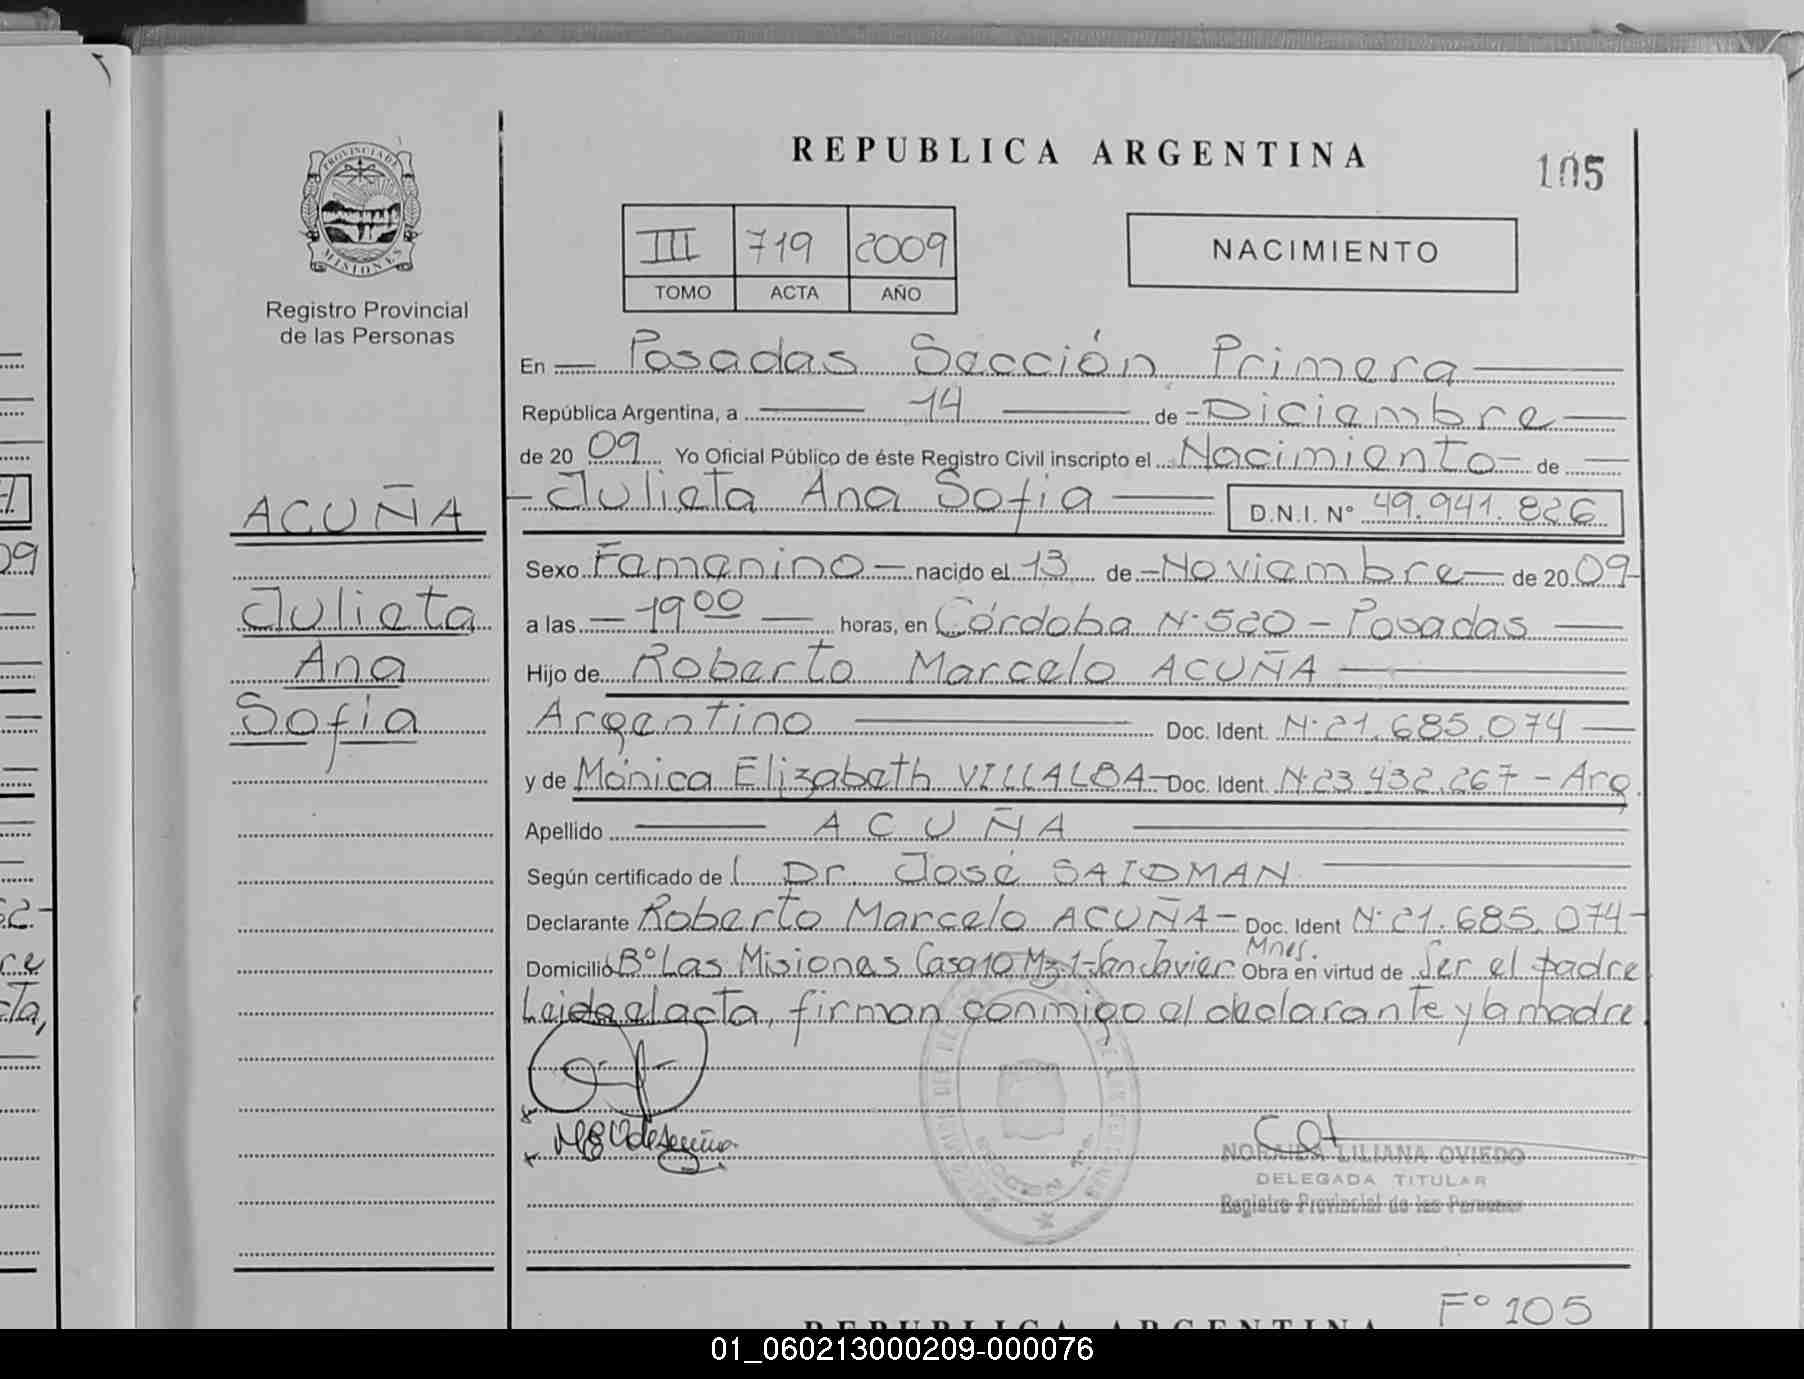 REPUBLICA ARGENTINA
105
III 719 2009
TOMO ACTA AÑO
NACIMIENTO
PROVINCIA DE
MISIONES
Registro Provincial
de las Personas
ACUÑA
Julieta
Ana
Sofia
En Posadas Sección Primera
República Argentina, a 14 de Diciembre
de 2009 Yo Oficial Público de éste Registro Civil inscripto el Nacimiento de
Julieta Ana Sofia D.N.I. N° 49.941.826
Sexo Femenino nacido el 13 de Noviembre de 2009
a las 19 00 horas, en Córdoba N° 520 - Posadas
Hijo de Roberto Marcelo ACUÑA
Argentino Doc. Ident. N° 21.685.074
y de Mónica Elizabeth VILLALBA Doc. Ident. N° 23.432.267 - Arg.
Apellido ACUÑA
Según certificado del Dr. José SAIDMAN
Declarante Roberto Marcelo ACUÑA - Doc. Ident N° 21.685.074
Mnes.
Domicilio B° Las Misiones Casa 10 Mz 1 - San Javier Obra en virtud de Ser el padre
Leida el acta, firman conmigo el declarante y la madre
NORAIDA LILIANA OVIEDO
DELEGADA TITULAR
Registro Provincial de las Personas
F° 105
REPUBLICA ARGENTINA
01_060213000209-000076